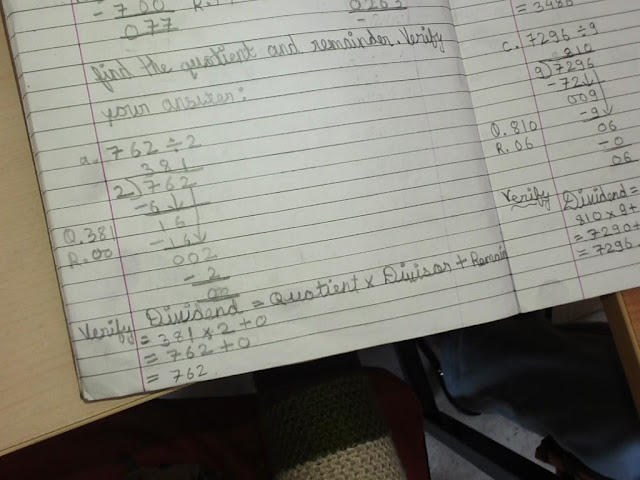 - 700
077
find the quotient and remainder. Verify
your answer:
a. 762 ÷ 2
381
2)762
-6
16
Q.381
-16
R.00
002
- 2
00
Verify Dividend = Quotient × Divisor + Remain
= 381 × 2 + 0
= 762 + 0
= 762
0263
= 3486
c. 7296 ÷ 9
810
9)7296
-72
009
-9
Q. 810
06
R. 06
-0
06
Verify Dividend =
810 × 9 +
= 7290 +
= 7296